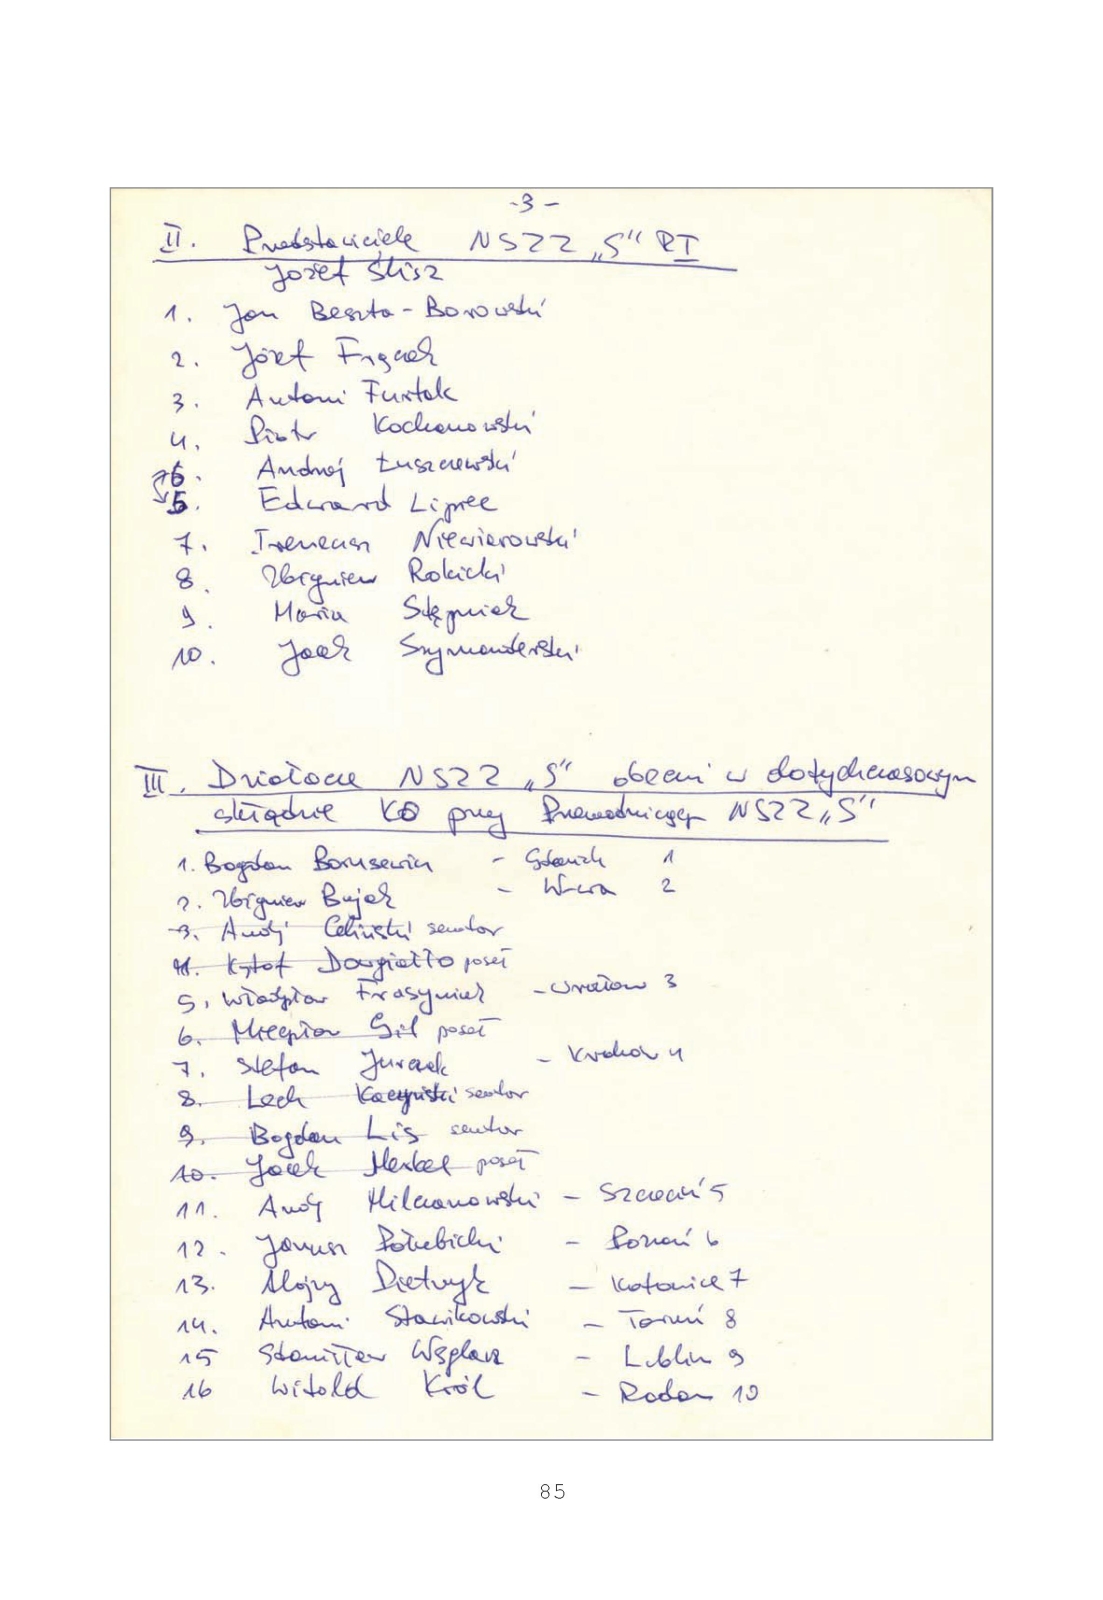 -3-
II. Przedstawiciele NSZZ „S" RI
Józef Ślisz
1. Jan Beszta-Borowski
2. Józef Frączek
3. Antoni Furtak
4. Piotr Kochanowski
6. Andrzej Łuszczewski
5. Edward Lipiec
7. Ireneusz Niewiarowski
8. Zbigniew Rokicki
9. Maria Stępniak
10. Jacek Szymanderski
III. Działacze NSZZ „S" obecni w dotychczasowym
składzie KO przy Przewodniczącym NSZZ „S"
1. Bogdan Borusewicz - Gdańsk 1
2. Zbigniew Bujak - W-wa 2
3. Andrzej Celiński senator
4. Krzysztof Dowgiałło poseł
5. Władysław Frasyniuk - Wrocław 3
6. Mieczysław Gil poseł
7. Stefan Jurczak - Kraków 4
8. Lech Kaczyński senator
9. Bogdan Lis senator
10. Jacek Merkel poseł
11. Andrzej Milczanowski - Szczecin 5
12. Janusz Pałubicki - Poznań 6
13. Alojzy Pietrzyk - Katowice 7
14. Antoni Stawikowski - Toruń 8
15 Stanisław Węglarz - Lublin 9
16 Witold Król - Radom 10
85